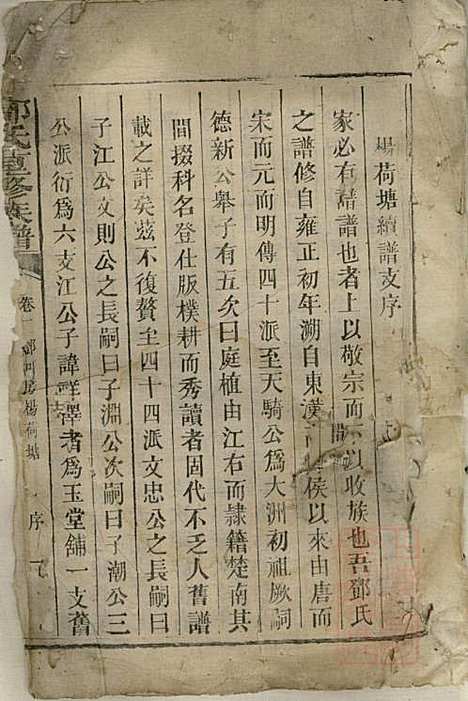 楊荷塘續譜支序
家必有譜譜也者上以敬宗而下以收族也吾鄧氏
之譜修自雍正初年溯自東漢高密侯以來由唐而
宋而元而明傳四十派至天騎公爲大洲初祖厥詞
德新公舉子有五次曰庭植由江右而隷籍楚南其
間掇科名登仕版樸耕而秀讀者固代不乏人舊譜
載之詳矣茲不復贅至四十四派文忠公之長嗣曰
子江公文則公之長嗣曰子淵公次嗣曰子潮公三
公派衍爲六支江公子諱祥擇者爲玉堂舖一支舊
鄧氏重修族譜
卷一
鄧門房楊荷塘
序
一